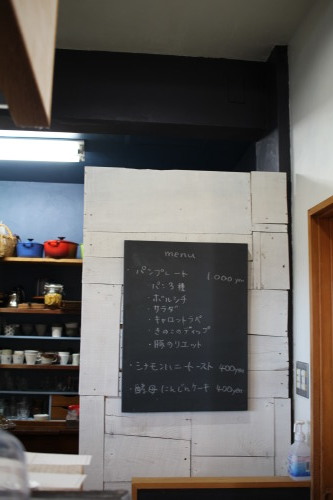 menu
・パンプレート 1000yen
パン3種
・ボルシチ
・サラダ
・キャロットラペ
・きのこのディップ
・豚のリエット
・シナモンハニートースト 400yen
・酵母にんじんケーキ 400yen